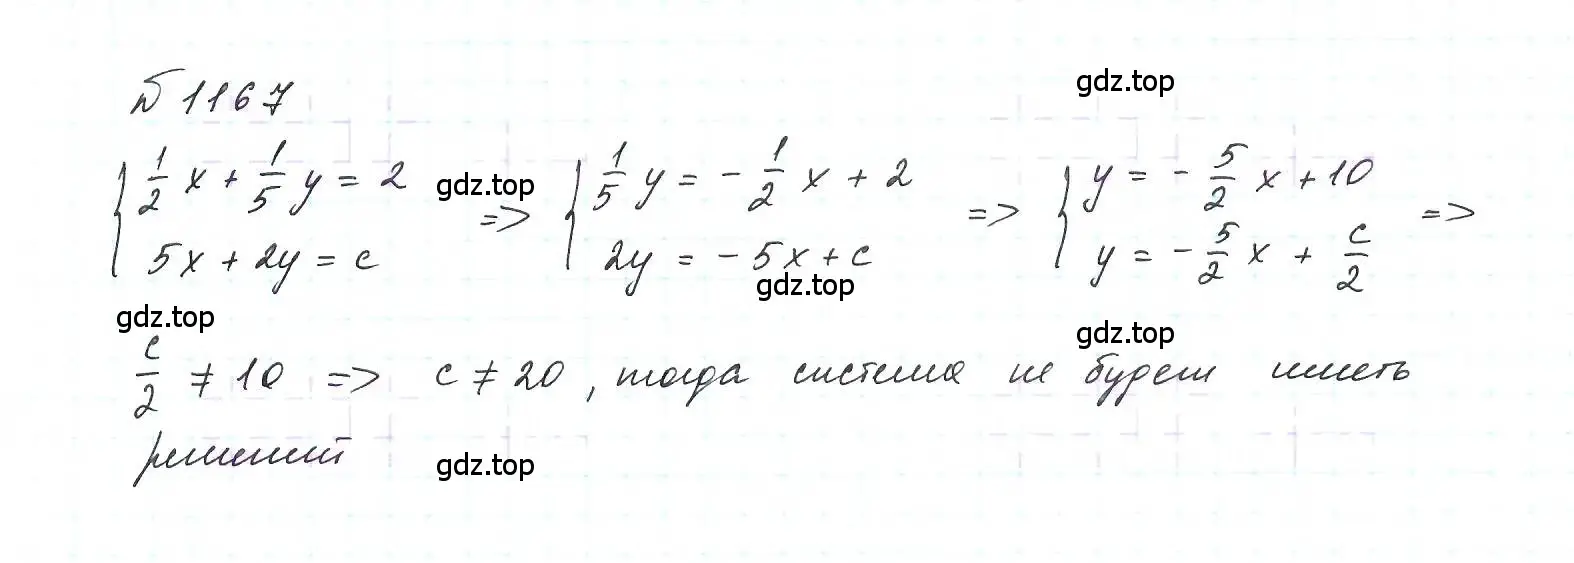 № 1167
gdz.top
{ 1/2 x + 1/5 y = 2 => { 1/5 y = - 1/2 x + 2 => { y = - 5/2 x + 10 =>
gdz.top
5x + 2y = c 2y = - 5x + c y = - 5/2 x + c/2
gdz.top
gdz.top
gdz.top
c/2 ≠ 10 => c ≠ 20, тогда система не будет иметь
решений
gdz.top